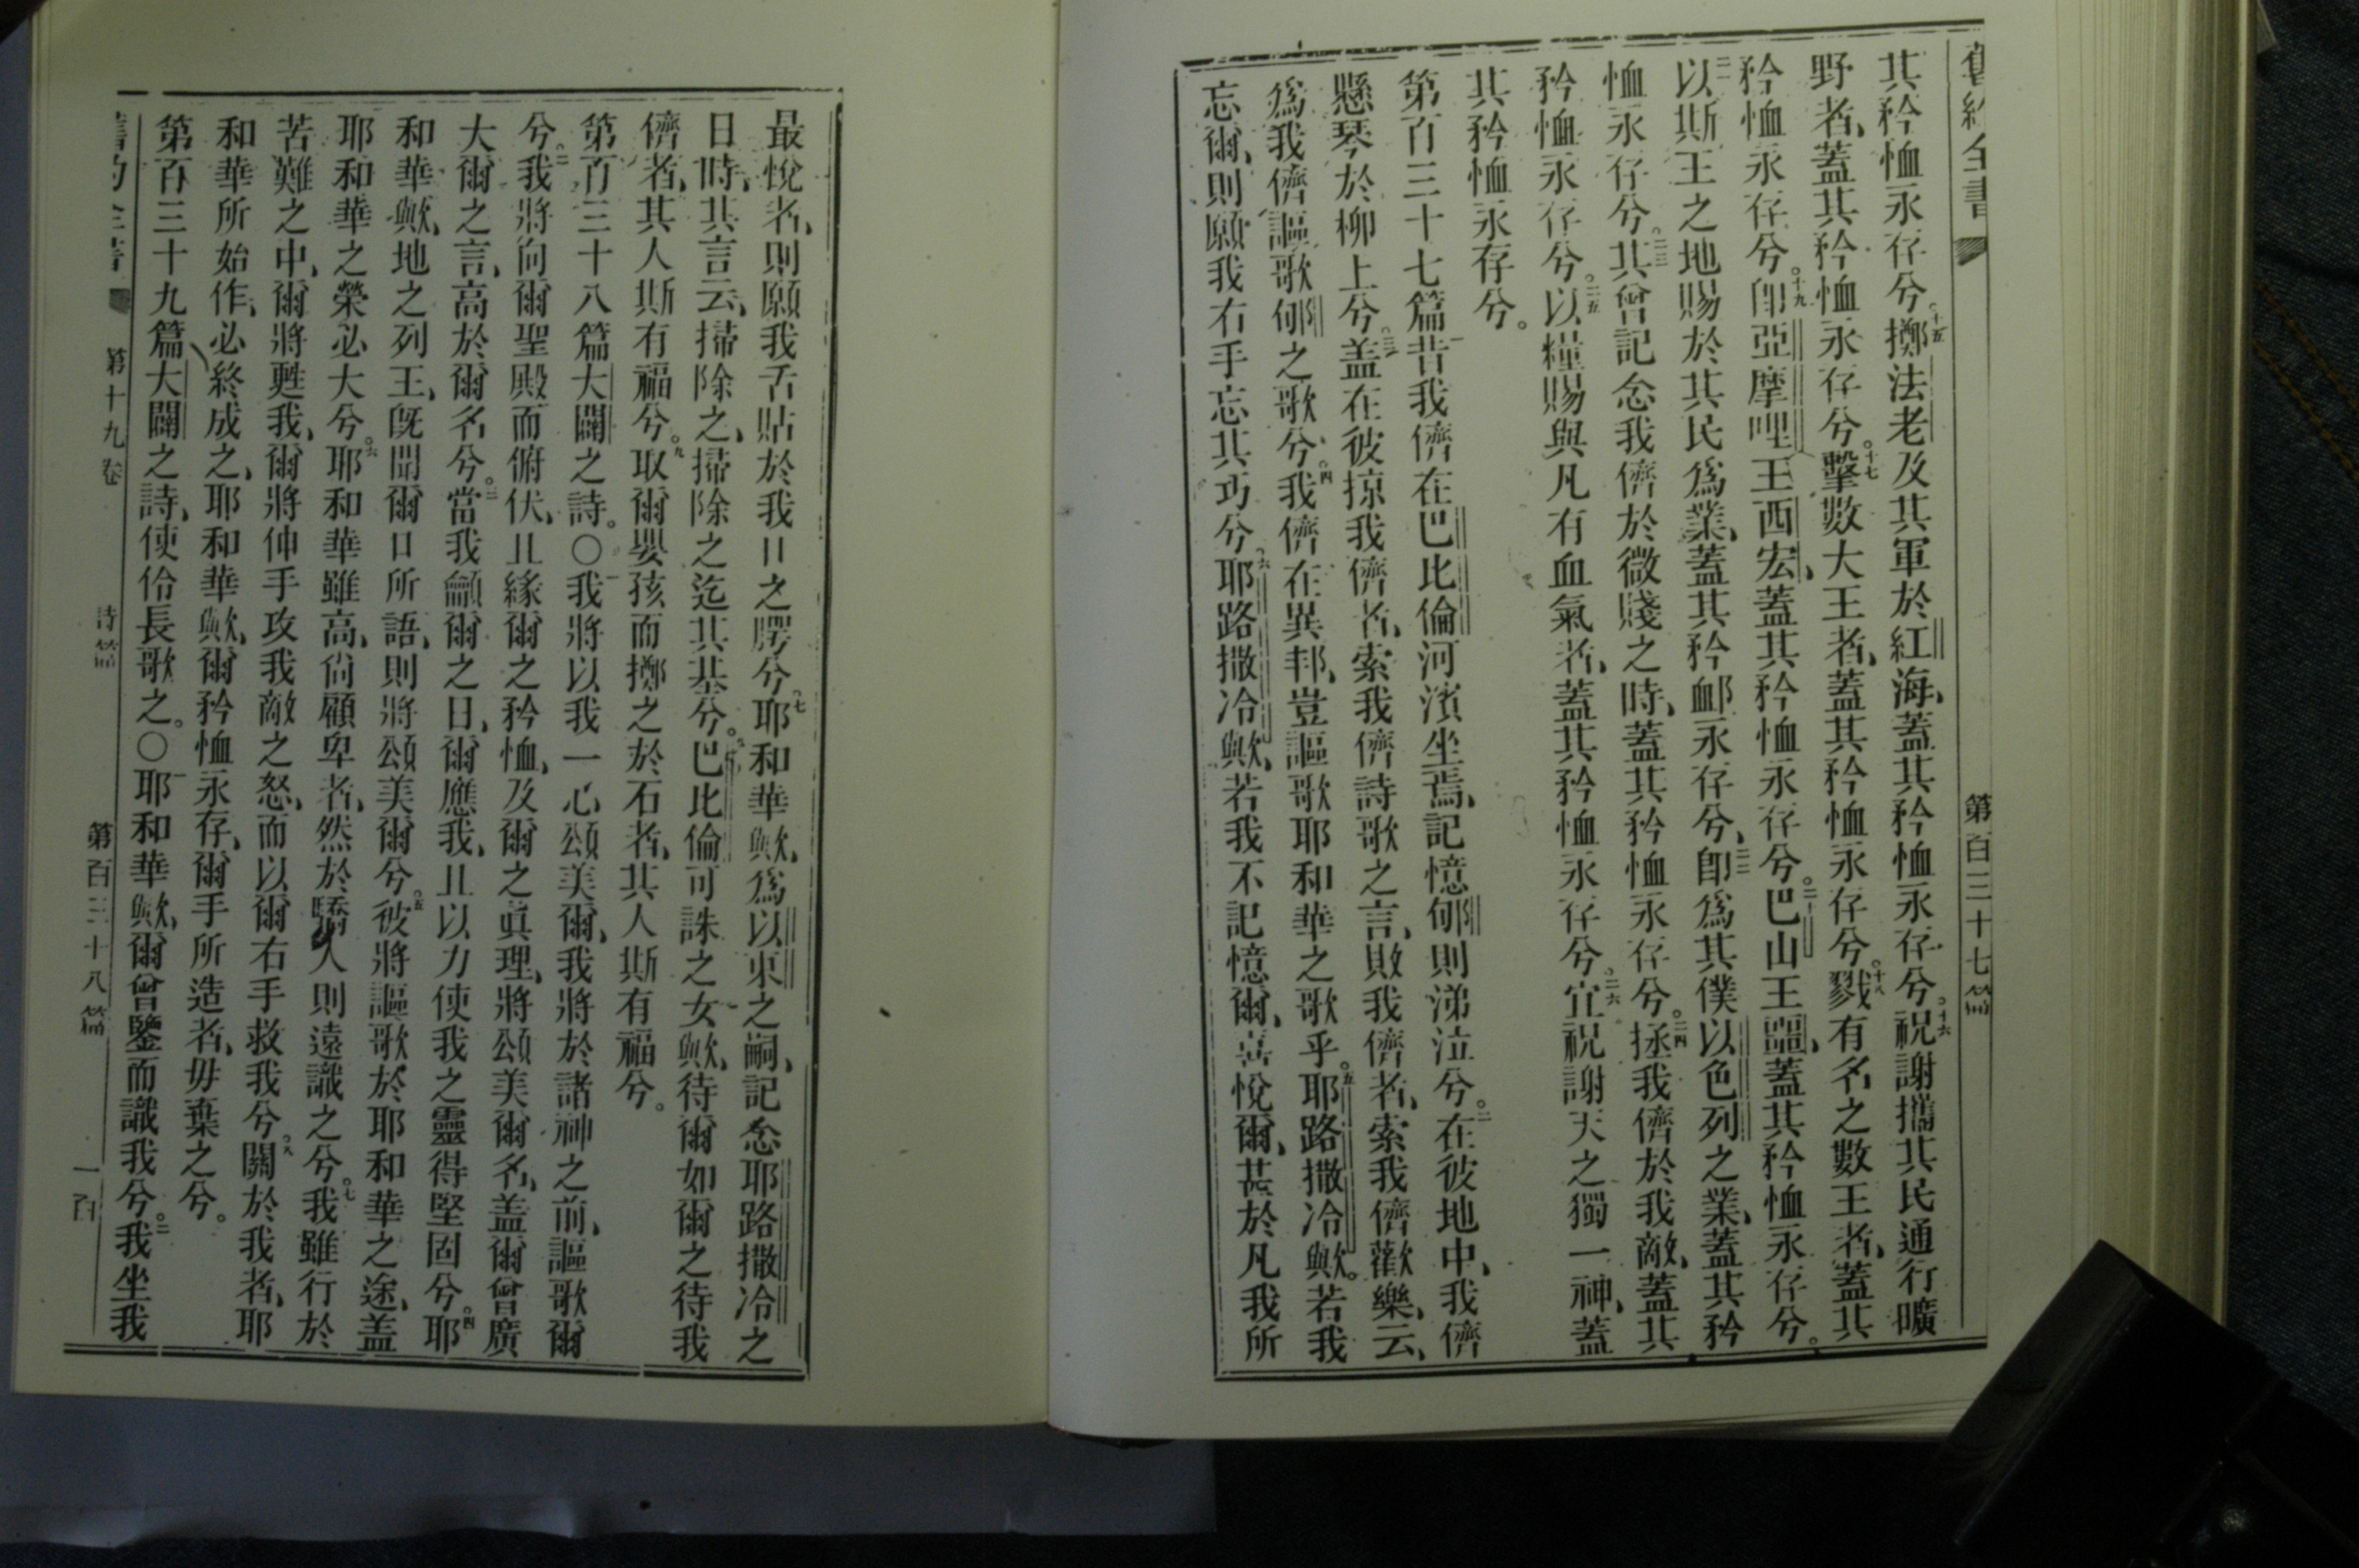 舊約全書 第百三十七篇
其矜恤永存兮。十五擲法老及其軍於紅海、蓋其矜恤永存兮。十六祝謝攜其民通行曠
野者、蓋其矜恤永存兮。十七擊數大王者、蓋其矜恤永存兮。十八戮有名之數王者、蓋其
矜恤永存兮。十九卽亞摩哩王西宏、蓋其矜恤永存兮。二十巴山王噩、蓋其矜恤永存兮。
二一以斯王之地賜於其民爲業、蓋其矜卹永存兮、二二卽爲其僕以色列之業、蓋其矜
恤永存兮。二三其曾記念我儕於微賤之時、蓋其矜恤永存兮。二四拯我儕於我敵、蓋其
矜恤永存兮。二五以糧賜與凡有血氣者、蓋其矜恤永存兮。二六宜祝謝天之獨一神、蓋
其矜恤永存兮。
第百三十七篇一昔我儕在巴比倫河濱坐焉、記憶郇則涕泣兮。二在彼地中、我儕
懸琴於柳上兮。三盖在彼掠我儕者、索我儕詩歌之言、敗我儕者、索我儕歡樂、云、
爲我儕謳歌郇之歌兮。四我儕在異邦、豈謳歌耶和華之歌乎。五耶路撒冷歟。若我
忘爾、則願我右手忘其巧兮。六耶路撒冷歟、若我不記憶爾、喜悅爾、甚於凡我所
最悅者、則願我舌貼於我口之腭兮。七耶和華歟、爲以東之嗣、記念耶路撒冷之
日時、其言云、掃除之、掃除之迄其基兮。八巴比倫可誅之女歟、待爾如爾之待我
儕者、其人斯有福兮。九取爾嬰孩而擲之於石者、其人斯有福兮。
第百三十八篇大闢之詩。〇一我將以我一心頌美爾、我將於諸神之前、謳歌爾
兮。二我將向爾聖殿而俯伏、且緣爾之矜恤、及爾之眞理、將頌美爾名、盖爾曾廣
大爾之言、高於爾名兮。三當我龥爾之日、爾應我、且以力使我之靈得堅固兮。四耶
和華歟、地之列王、旣聞爾口所語、則將頌美爾兮。五彼將謳歌於耶和華之途、盖
耶和華之榮必大兮。六耶和華雖高、尙顧卑者、然於驕人則遠識之兮。七我雖行於
苦難之中、爾將甦我、爾將伸手攻我敵之怒、而以爾右手救我兮。八關於我者、耶
和華所始作、必終成之、耶和華歟、爾矜恤永存、爾手所造者、毋棄之兮。
第百三十九篇大闢之詩、使伶長歌之。〇一耶和華歟、爾曾鑒而識我兮。二我坐我
舊約全書 第十九卷 詩篇 第百三十八篇 一百